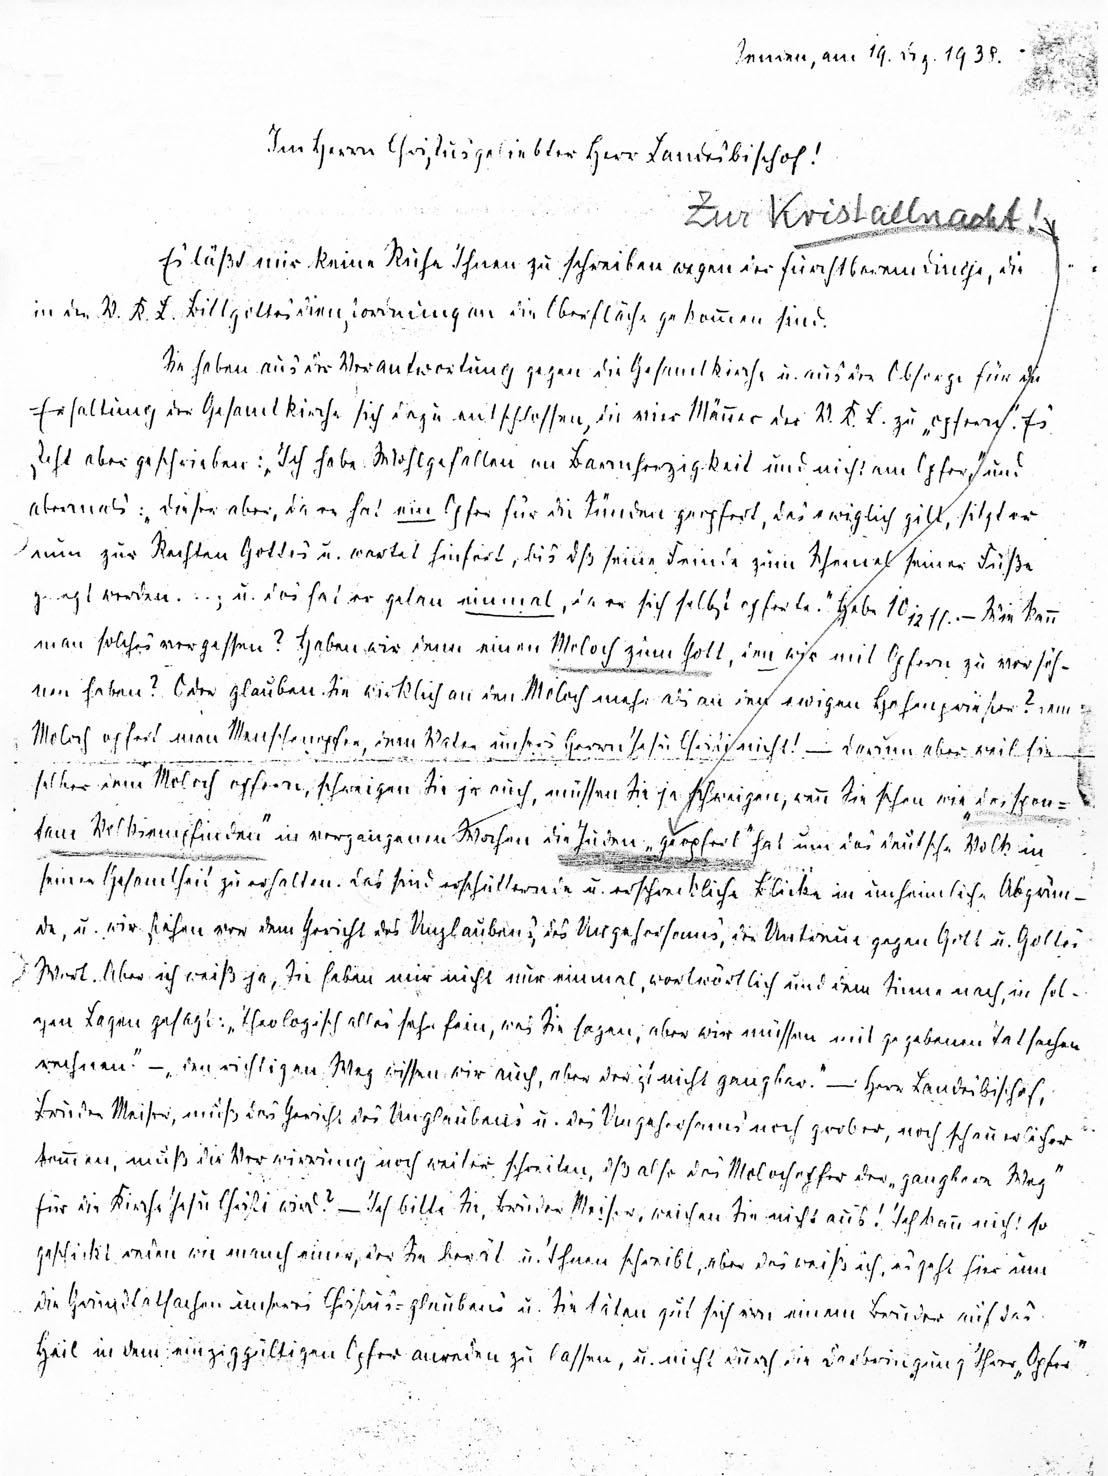 am 19. Dez. 1938.
Im Herrn Christus geliebter Herr Landesbischof!
Zur Kristallnacht!
Es läßt mir keine Ruhe Ihnen zu schreiben wegen der furchtbaren Dinge, die
in der V. K. L. Bittgottesdienstordnung an die Oberfläche gekommen sind.
Sie haben aus der Verantwortung gegen die Gesamtkirche u. aus der Obsorge für die
Erhaltung der Gesamtkirche sich dazu entschlossen, die vier Männer der V. K. L. zu „opfern“. Es
steht aber geschrieben: „Ich habe Wohlgefallen an Barmherzigkeit und nicht am Opfer“ und
abermals: „Dieser aber, da er hat ein Opfer für die Sünden geopfert, das ewiglich gilt, sitzt er
nun zur Rechten Gottes u. wartet hinfort, bis dß seine Feinde zum Schemel seiner Füße
gelegt werden. ..; u. das hat er getan einmal, da er sich selbst opferte.“ Hebr 10,12 ff. — Wie kann
man solches vergessen? Haben wir denn einen Moloch zum Gott, den wir mit Opfern zu versöh-
nen haben? Oder glauben Sie wirklich an den Moloch mehr als an den ewigen Hohenpriester? Dem
Moloch opfert man Menschenopfer, dem Vater unsers Herrn Jesu Christi nicht! — Darum aber weil Sie
selber dem Moloch opfern, schweigen Sie ja auch, müssen Sie ja schweigen, wenn Sie sehen wie „das spon=
tane Volksempfinden“ in vergangenen Wochen die Juden „geopfert“ hat um das deutsche Volk in
seiner Gesamtheit zu erhalten. Das sind erschütternde u. erschreckliche Blicke in unheimliche Abgrün-
de, u. wir stehen vor dem Gericht des Unglaubens, des Ungehorsams, der Untreue gegen Gott u. Gottes
Wort. Aber ich weiß ja, Sie haben mir nicht nur einmal, wortwörtlich und dem Sinne nach, in sol-
chen Lagen gesagt: „Theologisch alles sehr fein, was Sie sagen, aber wir müssen mit gegebenen Tatsachen
rechnen.“ — „den richtigen Weg wissen wir auch, aber der ist nicht gangbar.“ — Herr Landesbischof,
Bruder Meiser, muß das Gericht des Unglaubens u. des Ungehorsams noch grober, noch schauerlicher
kommen, muß die Verwirrung noch weiter schreiten, dß also das Molochopfer der „gangbare Weg“
für die Kirche Jesu Christi wird? — Ich bitte Sie, Bruder Meiser, weichen Sie nicht aus! Ich kann nicht so
geschickt reden wie manch einer, der Sie berät u. Ihnen schreibt, aber das weiß ich, es geht hier um
die Grundtatsachen unseres Christus=glaubens u. Sie täten gut sich von einem Bruder auf das
Heil in dem einziggültigen Opfer anreden zu lassen, u. nicht durch die Darbringung Ihrer „Opfer“